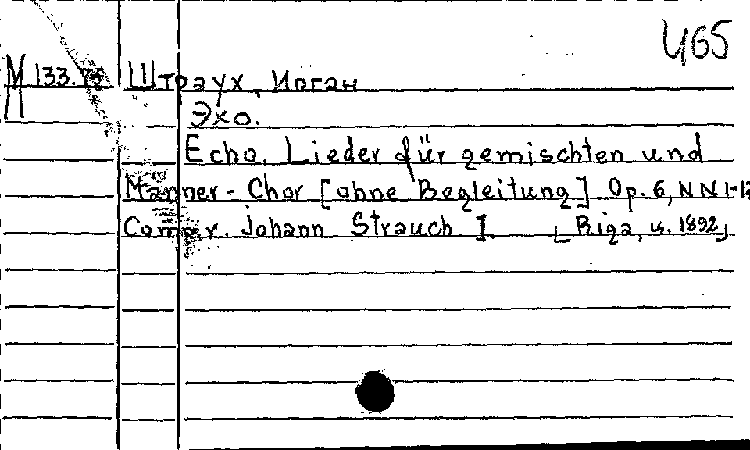 465
М 133.75 Штраух, Иоган
Эхо.
Echo. Lieder für gemischten und
Männer-Chor [ohne Begleitung] Op. 6, NN 1-12
Compr. Johann Strauch I. [Riga, u. 1892]